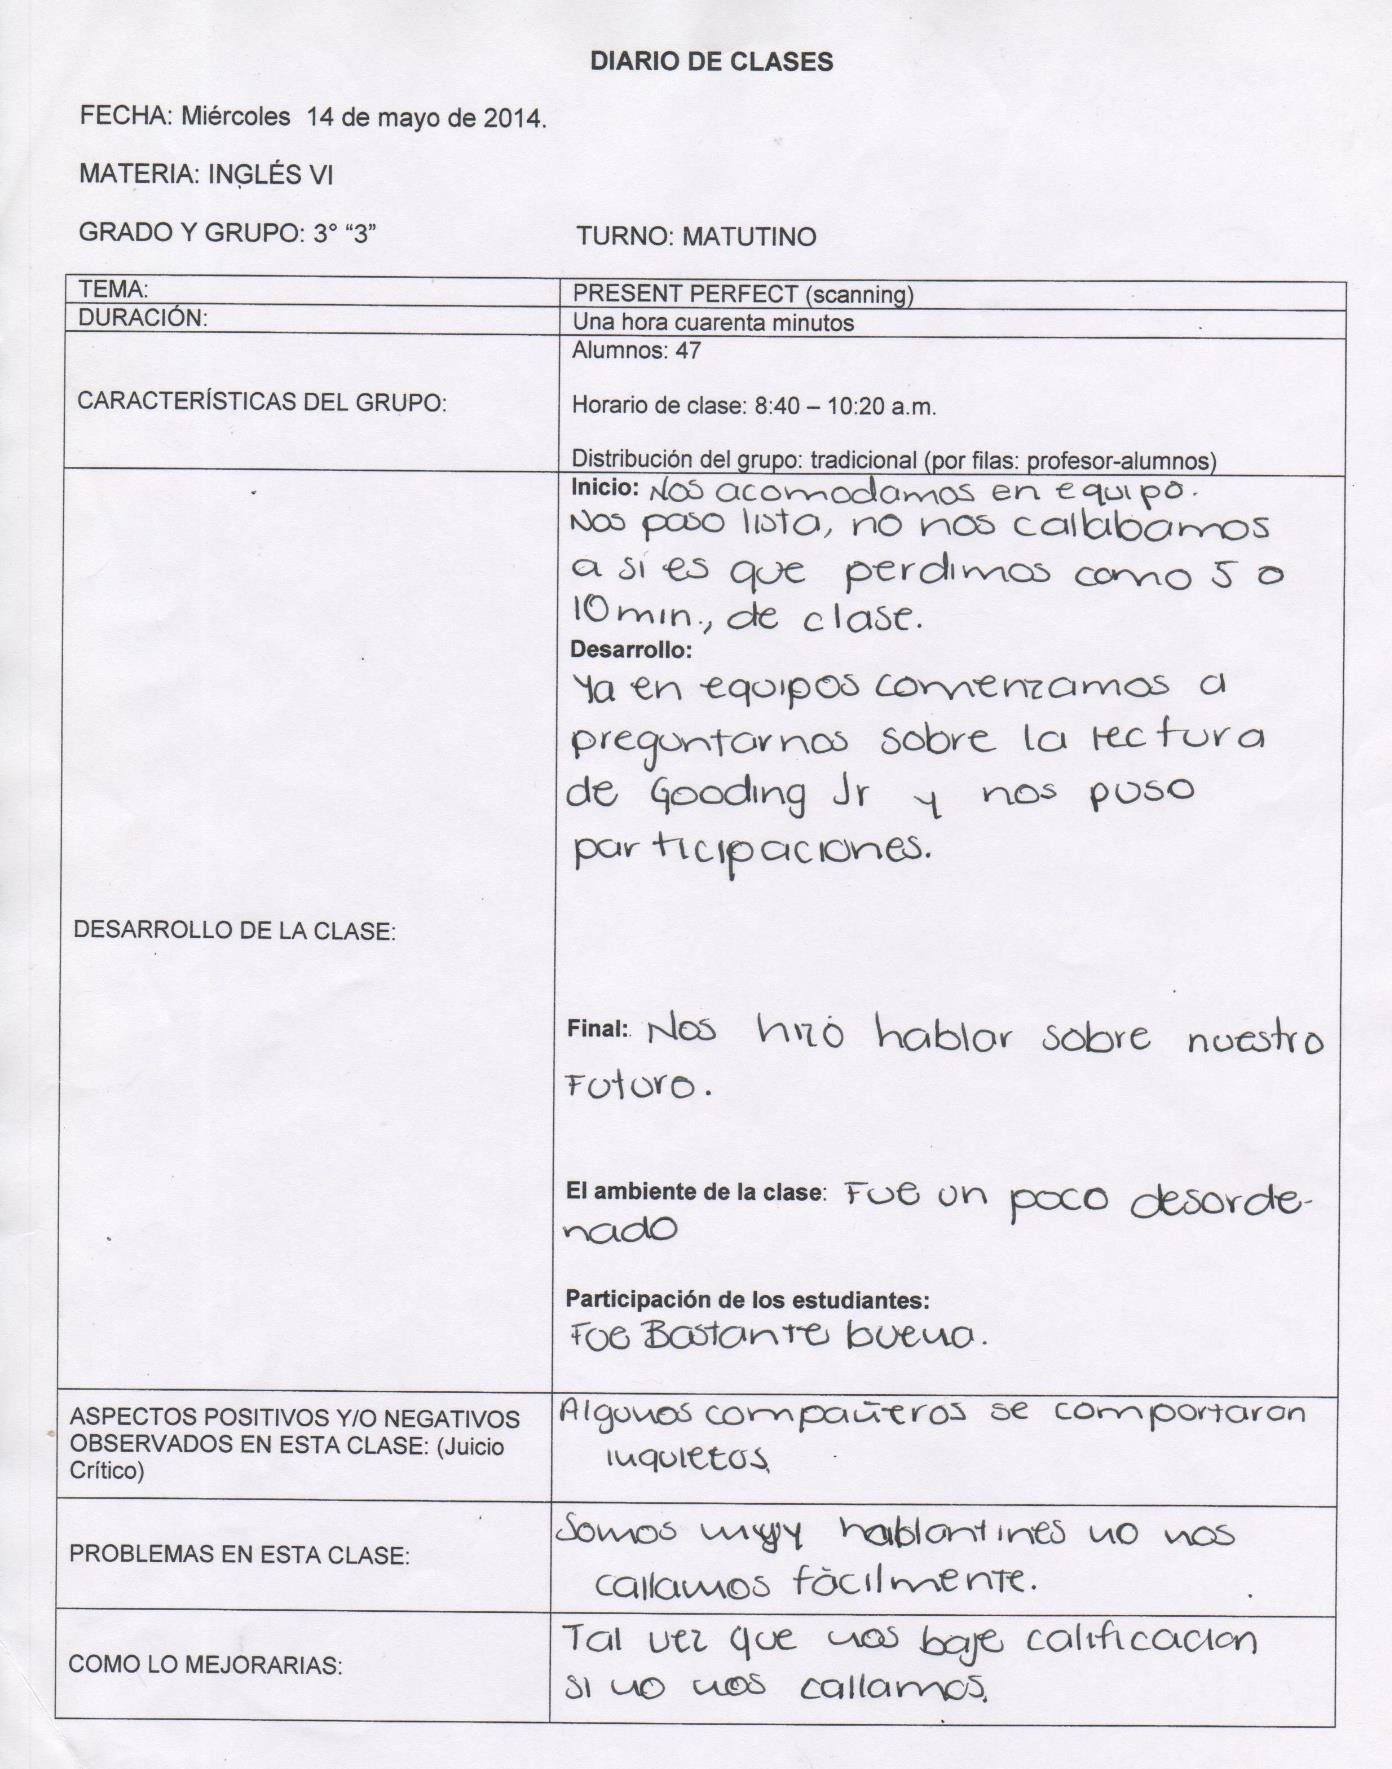 DIARIO DE CLASES
FECHA: Miércoles 14 de mayo de 2014.
MATERIA: INGLÉS VI
GRADO Y GRUPO: 3° “3” TURNO: MATUTINO
TEMA: PRESENT PERFECT (scanning)
DURACIÓN: Una hora cuarenta minutos
CARACTERÍSTICAS DEL GRUPO:
Alumnos: 47
Horario de clase: 8:40 – 10:20 a.m.
Distribución del grupo: tradicional (por filas: profesor-alumnos)
DESARROLLO DE LA CLASE:
Inicio: Nos acomodamos en equipo.
Nos paso lista, no nos callabamos
a si es que perdimos como 5 o
10 min., de clase.
Desarrollo:
Ya en equipos comenzamos a
preguntarnos sobre la lectura
de Gooding Jr y nos puso
participaciones.
Final: Nos hizó hablar sobre nuestro
Futuro.
El ambiente de la clase: Fue un poco desorde-
nado
Participación de los estudiantes:
Fue Bastante buena.
ASPECTOS POSITIVOS Y/O NEGATIVOS
OBSERVADOS EN ESTA CLASE: (Juicio
Crítico)
Algunos compañeros se comportaron
inquietos.
PROBLEMAS EN ESTA CLASE:
Somos muy hablantines no nos
callamos fácilmente.
COMO LO MEJORARIAS:
Tal vez que nos baje calificacion
si no nos callamos.